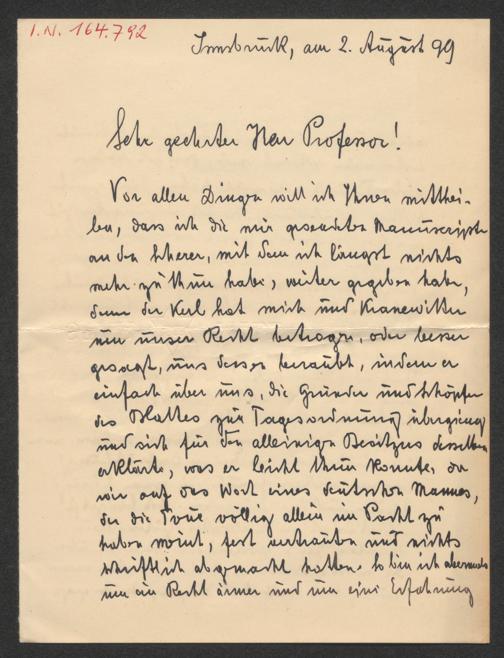 I.N. 164.792
Innsbruck, am 2. August 99
Sehr geehrter Herr Professor!
Vor allen Dingen will ich Ihnen mitthei-
len, dass ich die mir gesendeten Manuscripte
an den Scherer, mit dem ich längst nichts
mehr zu thun habe, weiter gegeben habe,
denn der Kerl hat mich und Kranewitter
um unser Recht betrogen, oder besser
gesagt, uns dessen beraubt, indem er
einfach über uns, die Gründer und Schöpfer
des Blattes zur Tagesordnung übergieng
und sich für den alleinigen Besitzer desselben
erklärte, was er leicht thun konnte, da
wir auf das Wort eines deutschen Mannes,
der die Treue völlig allein im Pacht zu
haben meint, fest vertrauten und nichts
schriftlich abgemacht hatten. So bin ich abermals
um ein Recht ärmer und um eine Erfahrung